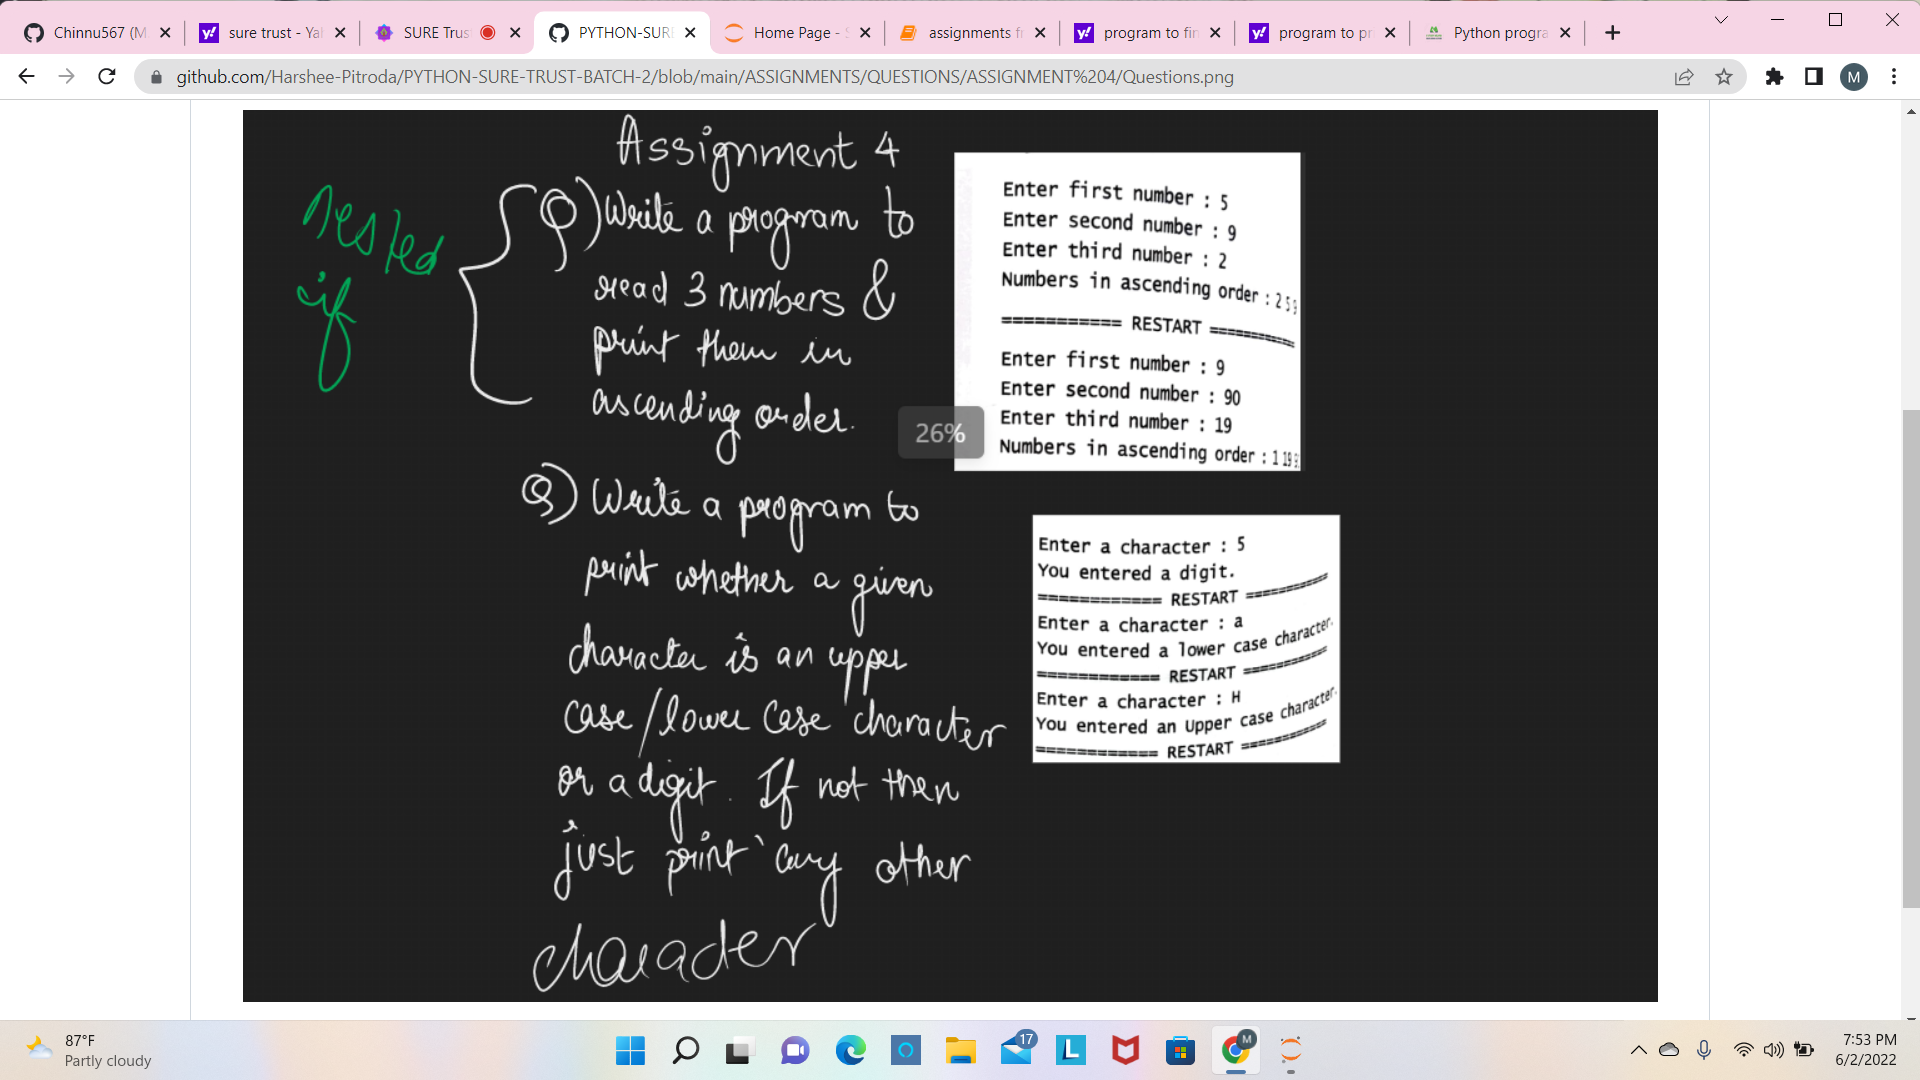 Chinnu567 (M
sure trust - Ya
SURE Trus
PYTHON-SURE
Home Page - S
assignments f
program to fin
program to pr
Python progra
github.com/Harshee-Pitroda/PYTHON-SURE-TRUST-BATCH-2/blob/main/ASSIGNMENTS/QUESTIONS/ASSIGNMENT%204/Questions.png
M
Assignment 4
nested
if
Q) Write a program to
read 3 numbers &
print them in
ascending order.
Enter first number : 5
Enter second number : 9
Enter third number : 2
Numbers in ascending order : 2 5 9
=========== RESTART ===========
Enter first number : 9
Enter second number : 90
Enter third number : 19
Numbers in ascending order : 1 19 9
26%
Q) Write a program to
print whether a given
character is an upper
case/lower case character
or a digit. If not then
just print any other
character
Enter a character : 5
You entered a digit.
============ RESTART ===========
Enter a character : a
You entered a lower case character.
============ RESTART ===========
Enter a character : H
You entered an Upper case character.
============ RESTART ===========
87°F
Partly cloudy
17
L
M
7:53 PM
6/2/2022